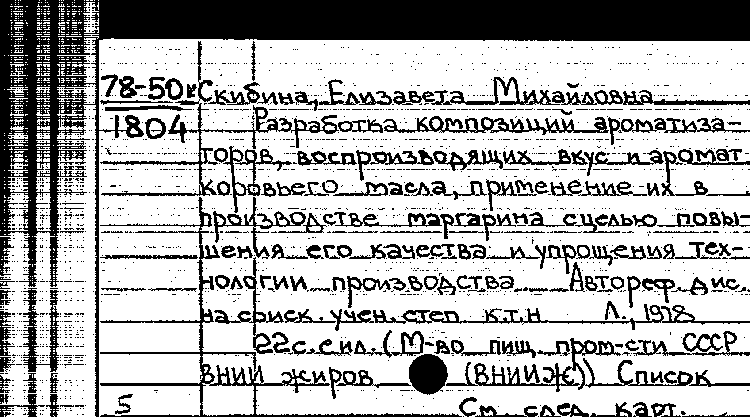 78-50к Скибина, Елизавета Михайловна
1804 Разработка композиций ароматиза-
торов, воспроизводящих вкус и аромат
коровьего масла, применение их в
производстве маргарина с целью повы-
шения его качества и упрощения тех-
нологии производства Автореф. дис.
на соиск. учен. степ к.т.н Л., 1978
22с. с ил. (М-во пищ. пром-сти СССР
ВНИИ жиров (ВНИИЖ)) Список
5 См след. карт.